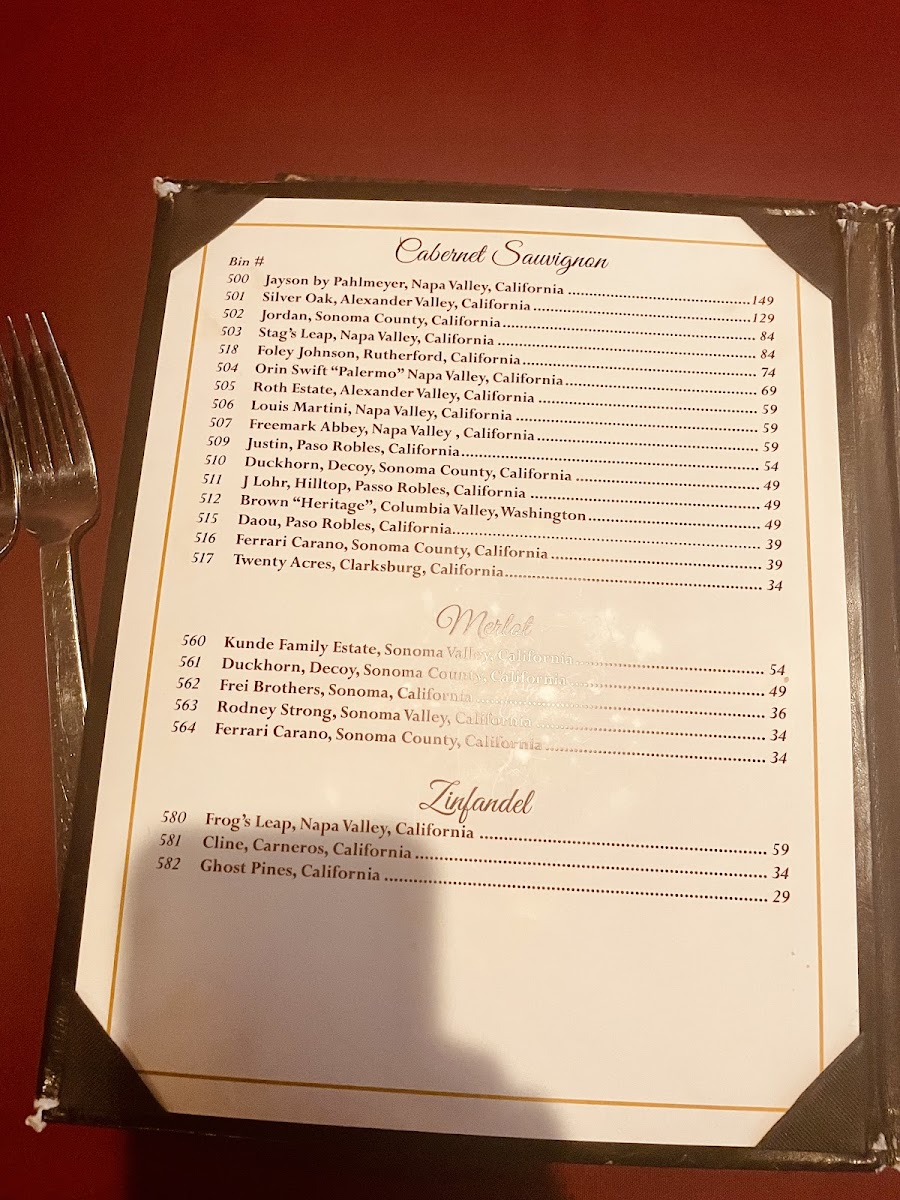 Cabernet Sauvignon
Bin #
500 Jayson by Pahlmeyer, Napa Valley, California ........ 149
501 Silver Oak, Alexander Valley, California ........ 129
502 Jordan, Sonoma County, California ........ 84
503 Stag's Leap, Napa Valley, California ........ 84
518 Foley Johnson, Rutherford, California ........ 74
504 Orin Swift "Palermo" Napa Valley, California ........ 69
505 Roth Estate, Alexander Valley, California ........ 59
506 Louis Martini, Napa Valley, California ........ 59
507 Freemark Abbey, Napa Valley , California ........ 59
509 Justin, Paso Robles, California ........ 54
510 Duckhorn, Decoy, Sonoma County, California ........ 49
511 J Lohr, Hilltop, Passo Robles, California ........ 49
512 Brown "Heritage", Columbia Valley, Washington ........ 49
515 Daou, Paso Robles, California ........ 39
516 Ferrari Carano, Sonoma County, California ........ 39
517 Twenty Acres, Clarksburg, California ........ 34
Merlot
560 Kunde Family Estate, Sonoma Valley, California ........ 54
561 Duckhorn, Decoy, Sonoma County, California ........ 49
562 Frei Brothers, Sonoma, California ........ 36
563 Rodney Strong, Sonoma Valley, California ........ 34
564 Ferrari Carano, Sonoma County, California ........ 34
Zinfandel
580 Frog's Leap, Napa Valley, California ........ 59
581 Cline, Carneros, California ........ 34
582 Ghost Pines, California ........ 29